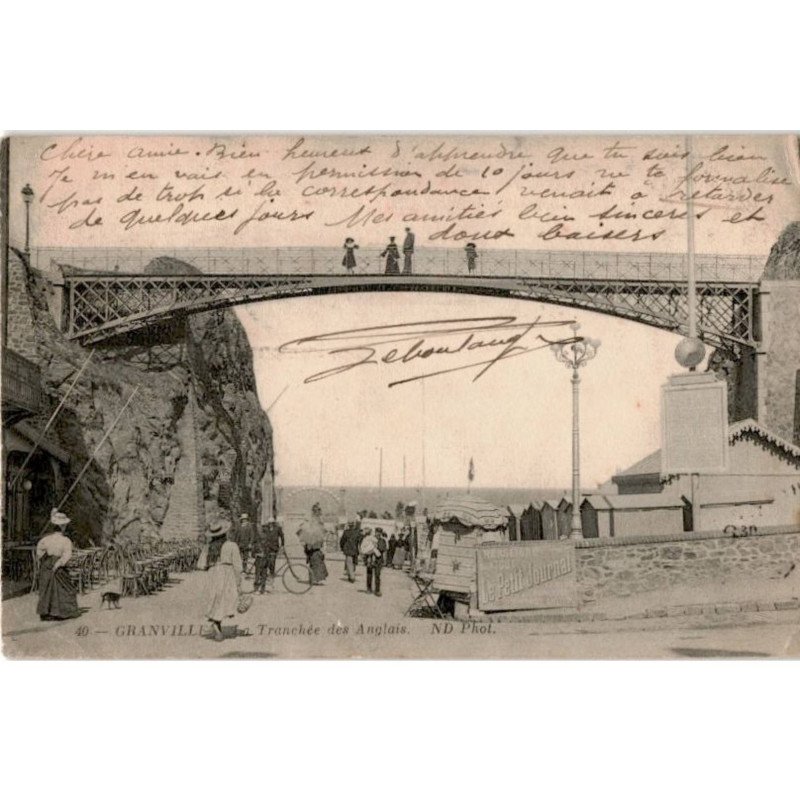 Chère amie. Bien heureux d'apprendre que tu sois bien
Je m'en vais en permission de 10 jours ne te formalise
pas de trop si la correspondance venait à retarder
de quelques jours Mes amitiés bien sincères et
doux baisers
Leboulanger
Le Petit Journal
40 - GRANVILLE La Tranchée des Anglais. ND Phot.